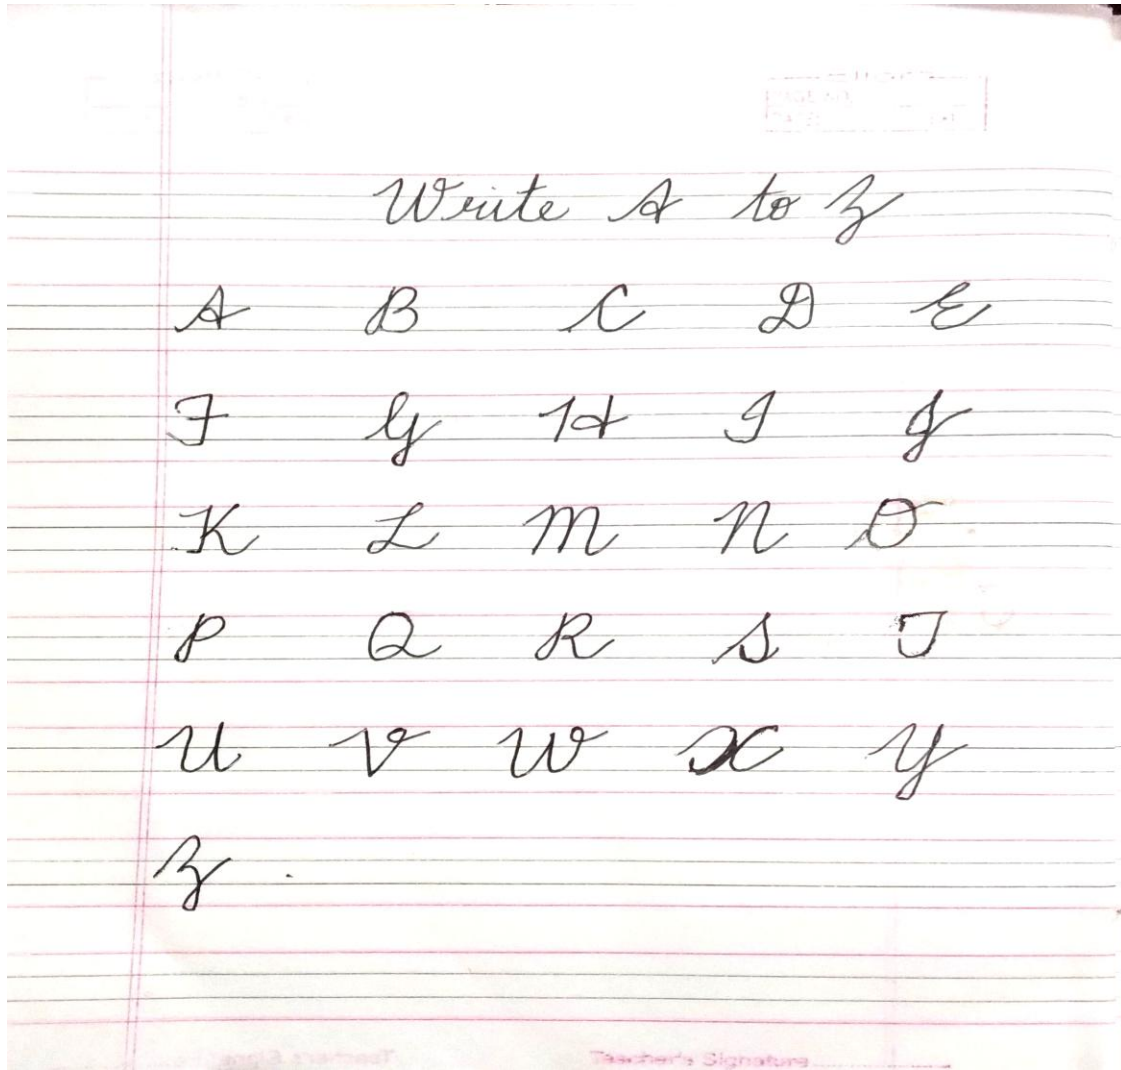 PAGE NO.
DATE:
Write A to Z
A B C D E
F G H I J
K L M N O
P Q R S T
U V W X Y
Z .
Teacher's Signature